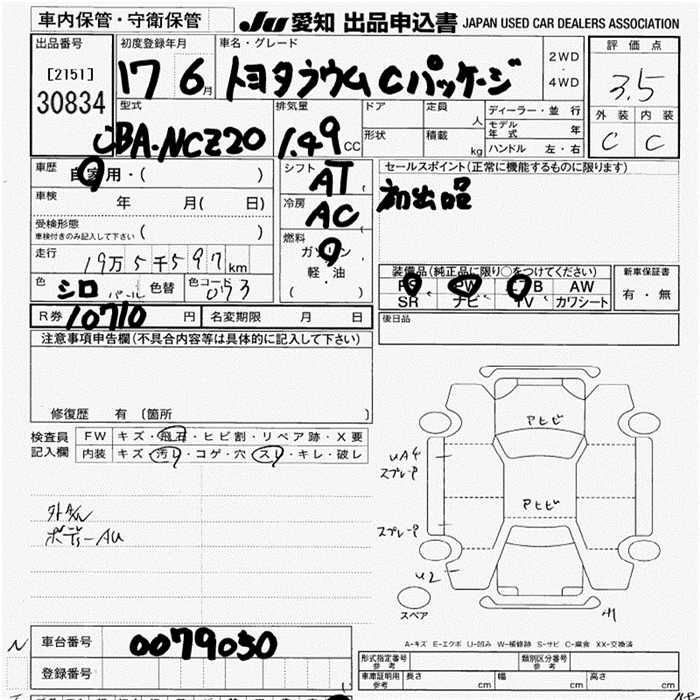 車内保管・守衛保管
JU 愛知 出品申込書 JAPAN USED CAR DEALERS ASSOCIATION
出品番号
[2151]
30834
初度登録年月
17 6 月
車名・グレード
トヨタラウム Cパッケージ
2WD
4WD
評価点
3.5
外装 内装
C C
型式
CBA-NCZ20
排気量
1.49 CC
ドア
形状
定員 人
積載 kg
ディーラー・並行
モデル年式 年
ハンドル 左・右
車歴
自家用・( )
車検 年 月( 日)
受検形態
車検付きのみ記入して下さい ( )
走行
19万5千597km
色
シロ パール
色替
色コード
073
シフト
AT
冷房
AC
燃料
ガソリン
軽・油
( )
セールスポイント(正常に機能するものに限ります)
初出品
装備品(純正品に限り○をつけてください)
PS PW エアB AW
SR ナビ TV カワシート
新車保証書
有・無
後日品
R券 10710 円
名変期限 月 日
注意事項申告欄(不具合内容等は具体的に記入して下さい)
修復歴 有 〔箇所 〕
検査員
記入欄
FW キズ・飛石・ヒビ割・リペア跡・X要
内装 キズ・汚レ・コゲ・穴・スレ・キレ・破レ
ボデーAU
アヒビ
アヒビ
UA4
スプレーP
スプレーP
U2
スペア
A-キズ E-エクボ U-凹み W-補修跡 S-サビ C-腐食 XX-交換済
N
車台番号
0079050
登録番号
形式指定番号
参考
類別区分番号
参考
車庫証明用
参考
長さ cm 幅 cm 高さ cm